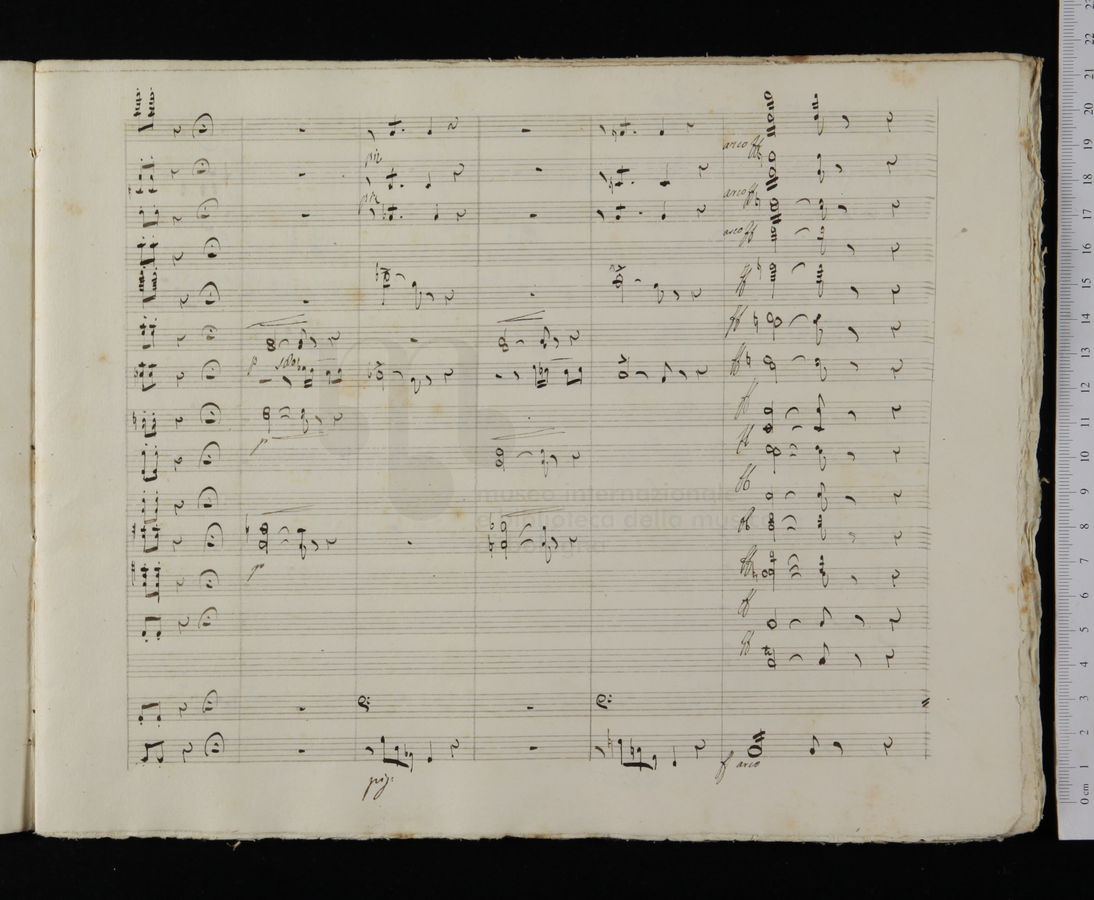 arco ff
piz
arco ff
piz
arco ff
ff
ff
p solo
ff
ff
p
ff
ff
ff
p
ff
ff
ff
piz:
ff arco
museo internazionale
della musica
0 cm 1 2 3 4 5 6 7 8 9 10 11 12 13 14 15 16 17 18 19 20 21 22